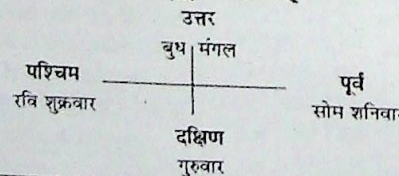 उत्तर
बुध मंगल
पश्चिम
पूर्व
रवि शुक्रवार
सोम शनिवा
दक्षिण
गुरुवार